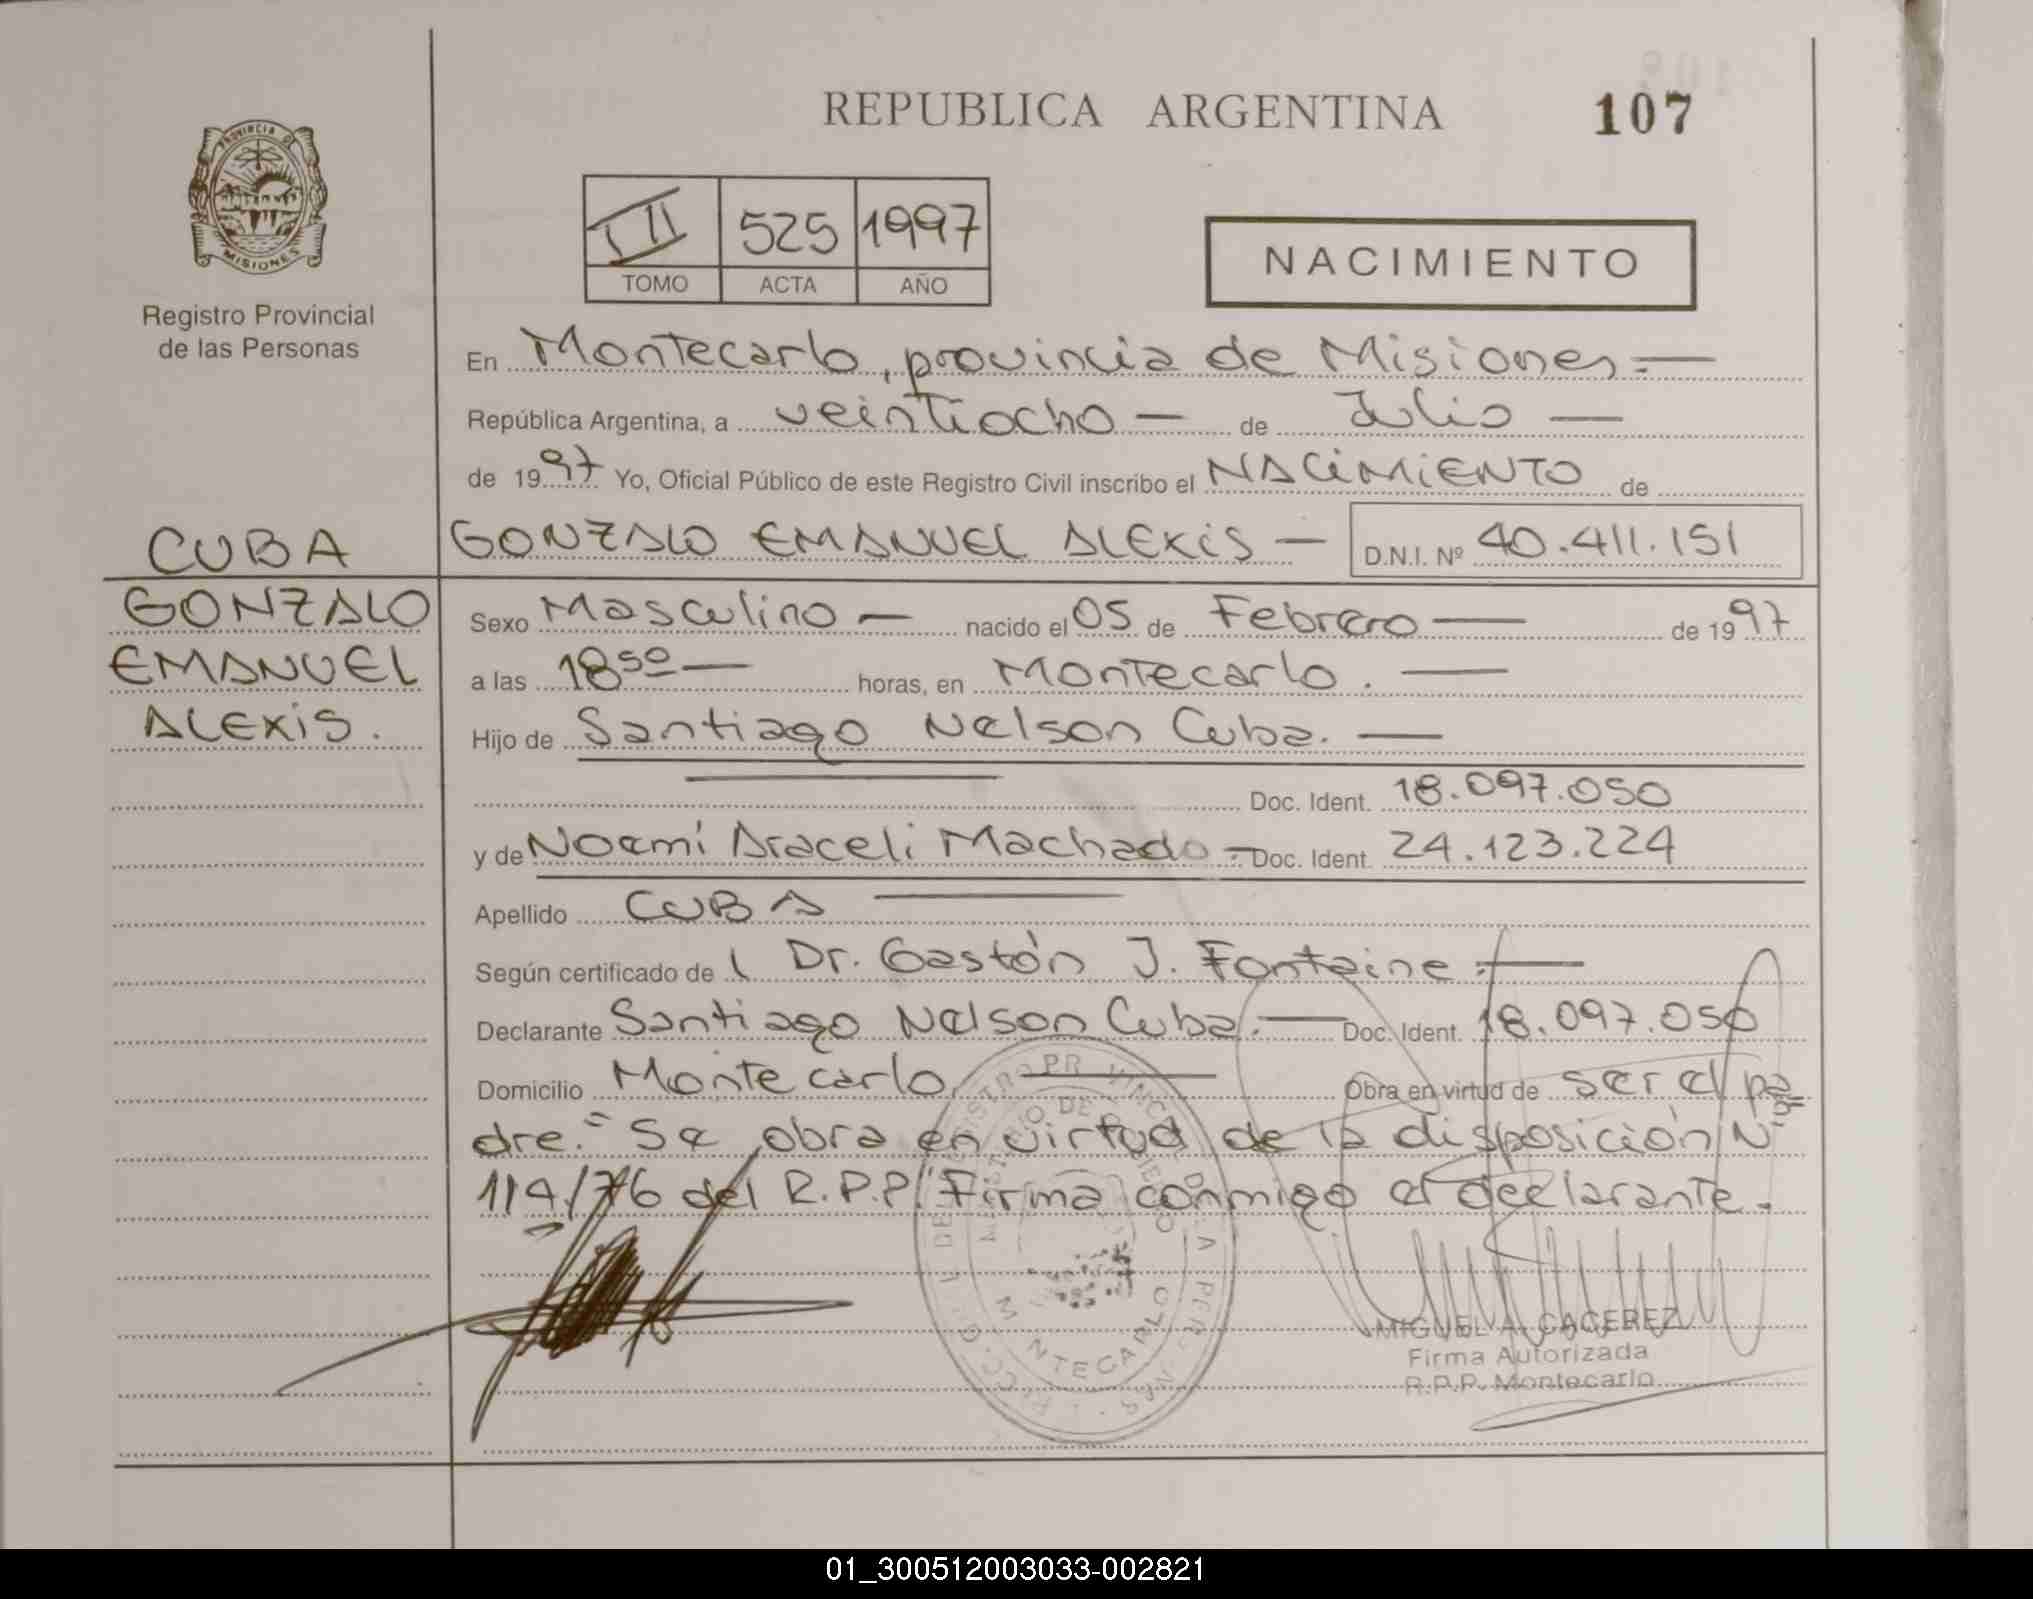 REPUBLICA ARGENTINA
107
PROVINCIA DE
MISIONES
Registro Provincial
de las Personas
III 525 1997
TOMO ACTA AÑO
NACIMIENTO
En Montecarlo, provincia de Misiones =—
República Argentina, a veintiocho — de Julio —
de 1997 Yo, Oficial Público de este Registro Civil inscribo el NACIMIENTO de
GONZALO EMANUEL ALEXIS — D.N.I. Nº 40.411.151
CUBA
GONZALO
EMANUEL
ALEXIS.
Sexo Masculino — nacido el 05 de Febrero — de 1997
a las 18 50 — horas, en Montecarlo. —
Hijo de Santiago Nelson Cuba. —
Doc. Ident. 18.097.050
y de Noemí Araceli Machado.- Doc. Ident. 24.123.224
Apellido CUBA —
Según certificado de l Dr. Gastón J. Fontaine.—
Declarante Santiago Nelson Cuba.— Doc. Ident. 18.097.050
Domicilio Montecarlo — Obra en virtud de ser el pa=
dre.= Se obra en virtud de la disposición Nº
114/76 del R.P.P. Firma conmigo el declarante.
MONTECARLO
MIGUEL A. CACEREZ
Firma Autorizada
R.P.P. Montecarlo
01_300512003033-002821